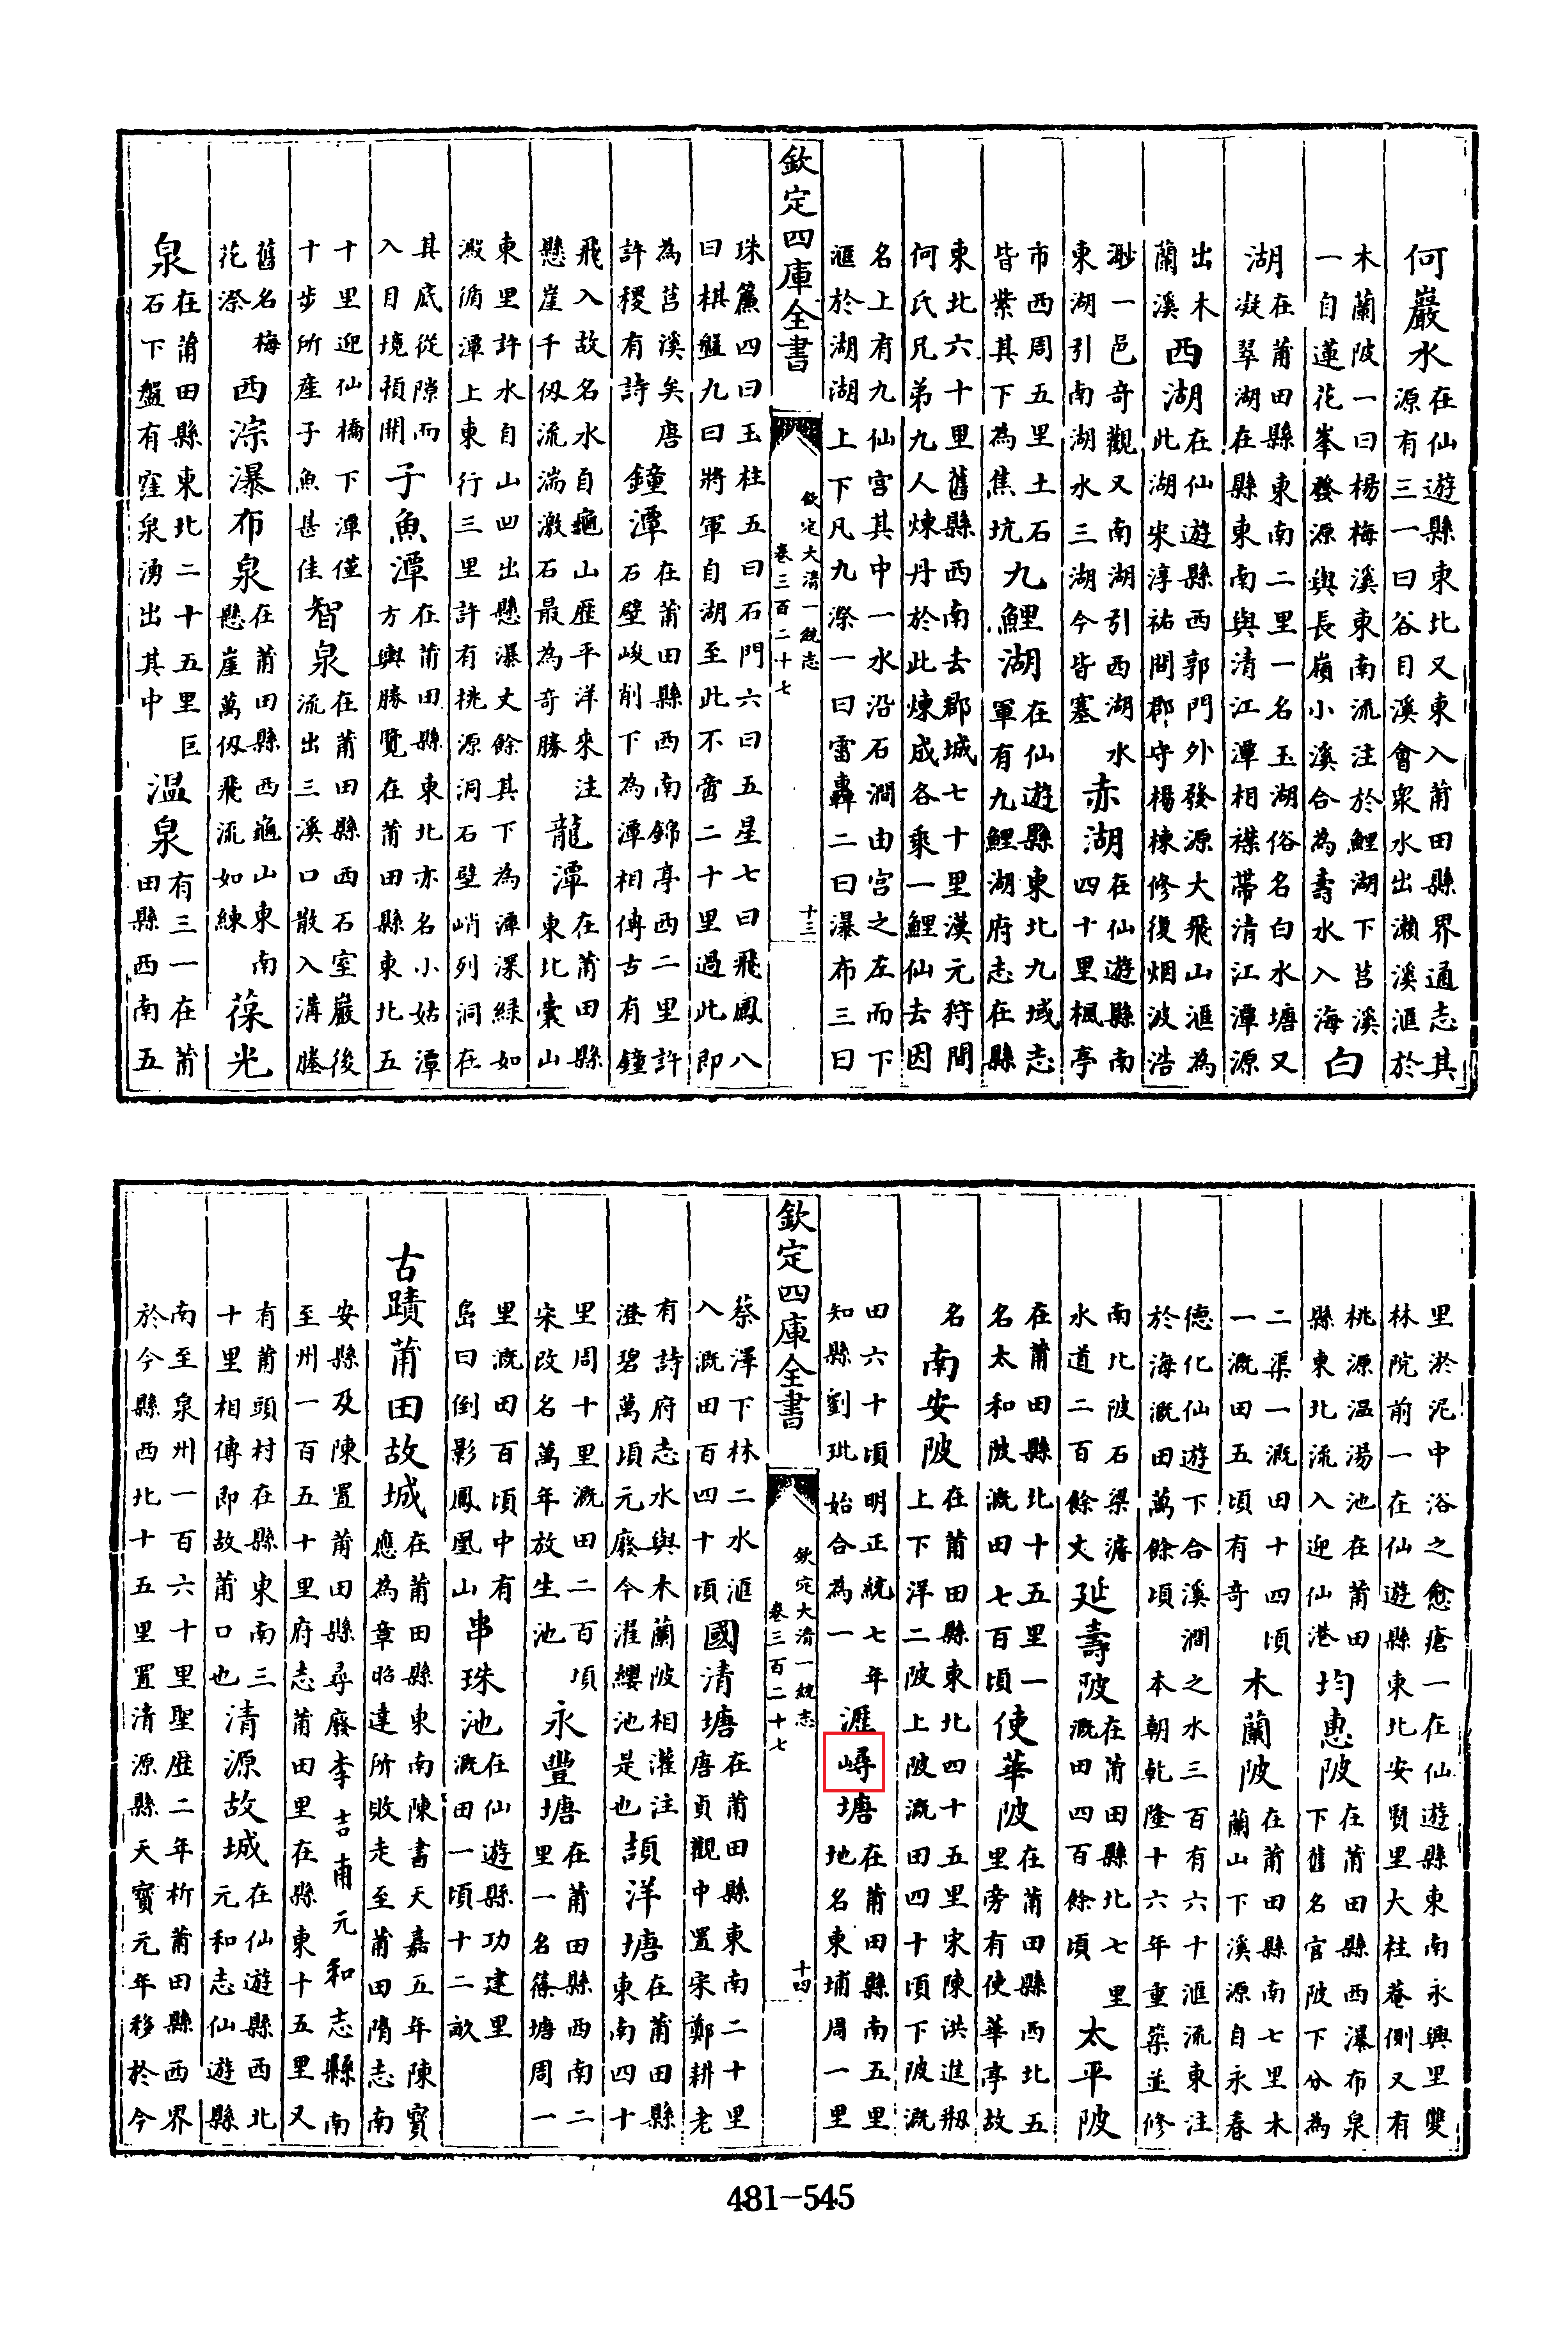 何巖水在仙遊縣東北又東入莆田縣界通志其
源有三一曰谷目溪會衆水出瀨溪滙於
木蘭陂一曰楊梅溪東南流注於鯉湖下莒溪
一自蓮花峯發源與長嶺小溪合為壽水入海白
湖在莆田縣東南二里一名玉湖俗名白水塘又
凝翠湖在縣東南與清江潭相襟帶清江潭源
出木
蘭溪西湖在仙遊縣西郭門外發源大飛山滙為
此湖宋淳祐間郡守楊棟修復烟波浩
渺一邑奇觀又南湖引西湖水
東湖引南湖水三湖今皆塞赤湖在仙遊縣南
四十里楓亭
市西周五里土石
皆紫其下為焦坑九鯉湖在仙遊縣東北九域志
軍有九鯉湖府志在縣
東北六十里舊縣西南去郡城七十里漢元狩間
何氏兄弟九人煉丹於此煉成各乘一鯉仙去因
名上有九仙宮其中一水沿石澗由宮之左而下
滙於湖湖上下凡九漈一曰雷轟二曰瀑布三曰
欽定四庫全書
欽定大清一統志
卷三百二十七
十三
珠簾四曰玉柱五曰石門六曰五星七曰飛鳳八
曰棋盤九曰將軍自湖至此不啻二十里過此即
為莒溪矣唐
許稷有詩鐘潭在莆田縣西南錦亭西二里許
石壁峻削下為潭相傳古有鐘
飛入故名水自龜山歷平洋來注
懸崖千仭流湍激石最為奇勝龍潭在莆田縣
東北囊山
東里許水自山凹出懸瀑丈餘其下為潭深緑如
澱循潭上東行三里許有桃源洞石壁峭列洞在
其底從隙而
入目境頓開子魚潭在莆田縣東北亦名小姑潭
方輿勝覽在莆田縣東北五
十里迎仙橋下潭僅
十步所産子魚甚佳智泉在莆田縣西石室巖後
流出三溪口散入溝塍
舊名梅
花漈西淙瀑布泉在莆田縣西龜山東南
懸崖萬仭飛流如練葆光
泉在莆田縣東北二十五里巨
石下盤有窪泉湧出其中温泉有三一在莆
田縣西南五
里淤泥中浴之愈瘡一在仙遊縣東南永興里雙
林院前一在仙遊縣東北安賢里大柱菴側又有
桃源温湯池在莆田
縣東北流入迎仙港均惠陂在莆田縣西瀑布泉
下舊名官陂下分為
二渠一溉田十四頃
一溉田五頃有奇木蘭陂在莆田縣南七里木
蘭山下溪源自永春
德化仙遊下合溪澗之水三百有六十滙流東注
於海溉田萬餘頃本朝乾隆十六年重築並修
南北陂石梁濬
水道二百餘丈延壽陂在莆田縣北七里
溉田四百餘頃太平陂
在莆田縣北十五里一
名太和陂溉田七百頃使華陂在莆田縣西北五
里旁有使華亭故
名南安陂在莆田縣東北四十五里宋陳洪進剏
上下洋二陂上陂溉田四十頃下陂溉
田六十頃明正統七年
知縣劉玭始合為一漄㟳塘在莆田縣南五里
地名東埔周一里
欽定四庫全書
欽定大清一統志
卷三百二十七
十四
蔡澤下林二水滙
入溉田百四十頃國清塘在莆田縣東南二十里
唐貞觀中置宋鄭耕老
有詩府志水與木蘭陂相灌注
澄碧萬頃元廢今濯纓池是也頡洋塘在莆田縣
東南四十
里周十里溉田二百項
宋改名萬年放生池永豐塘在莆田縣西南二
里一名篠塘周一
里溉田百頃中有
島曰倒影鳳凰山串珠池在仙遊縣功建里
溉田一頃十二畝
古蹟莆田故城在莆田縣東南陳書天嘉五年陳寳
應為章昭達所敗走至莆田隋志南
安縣及陳置莆田縣尋廢李吉甫元和志縣南
至州一百五十里府志莆田里在縣東十五里又
有莆頭村在縣東南三
十里相傳即故莆口也清源故城在仙遊縣西北
元和志仙遊縣
南至泉州一百六十里聖歴二年析莆田縣西界
於今縣西北十五里置清源縣天寳元年移於今
481-545